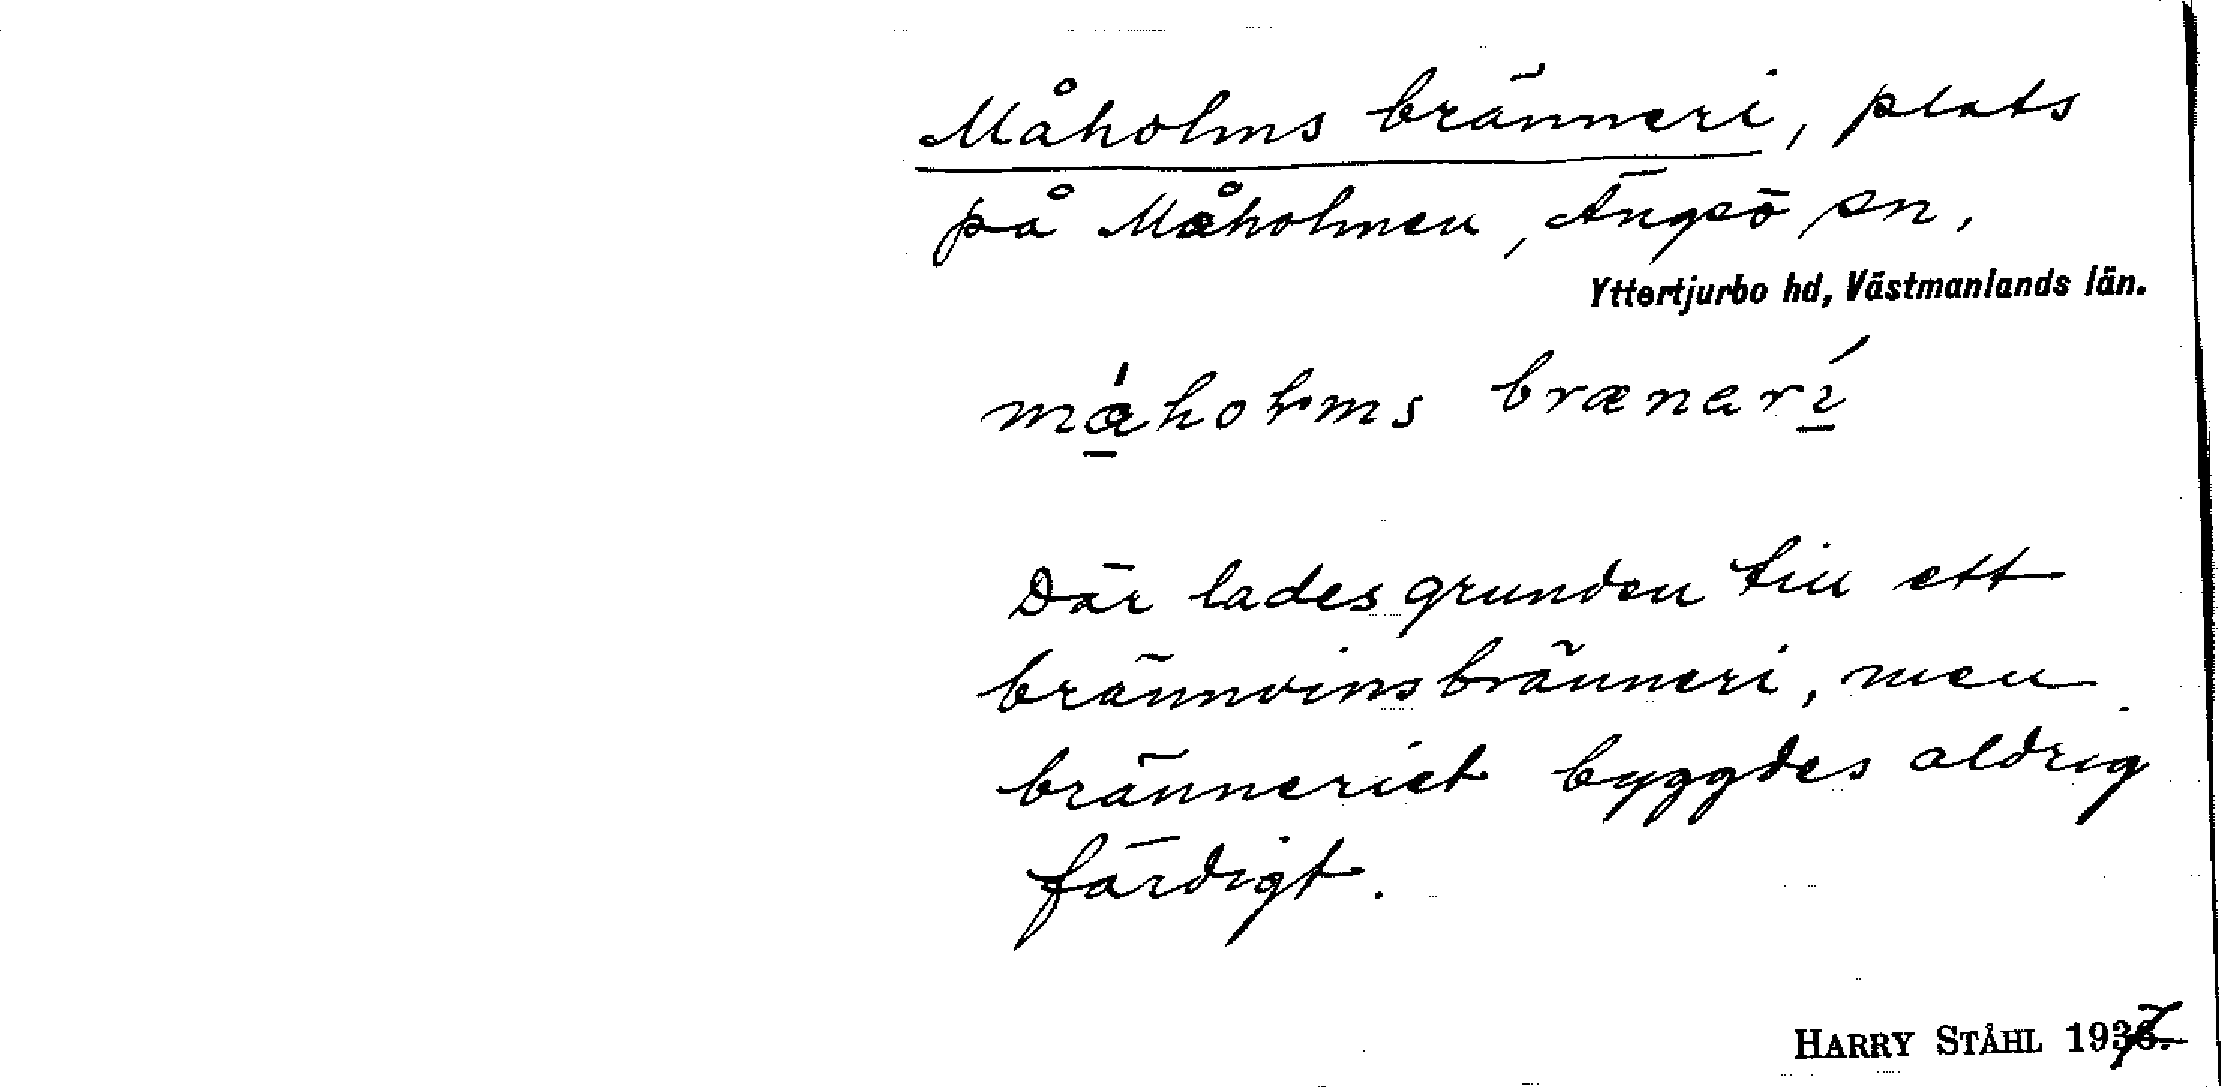 Måholms bränneri, plats
på Måholmen, Ängsö sn,
Yttertjurbo hd, Västmanlands län.
må̀hoɫms brænerí
Där lades grunden till ett
brännvinsbränneri, men
bränneriet byggdes aldrig
färdigt.
HARRY STÅHL 1937